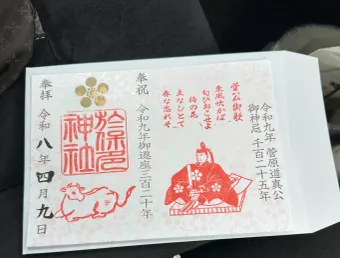 令和九年 菅原道真公
御神忌 千百二十五年
菅公御歌
東風吹かば
匂ひおこせよ
梅の花
主なしとて
春な忘れそ
奉祝 令和九年御遷座三百二十年
神社
奉拝 令和八年四月九日